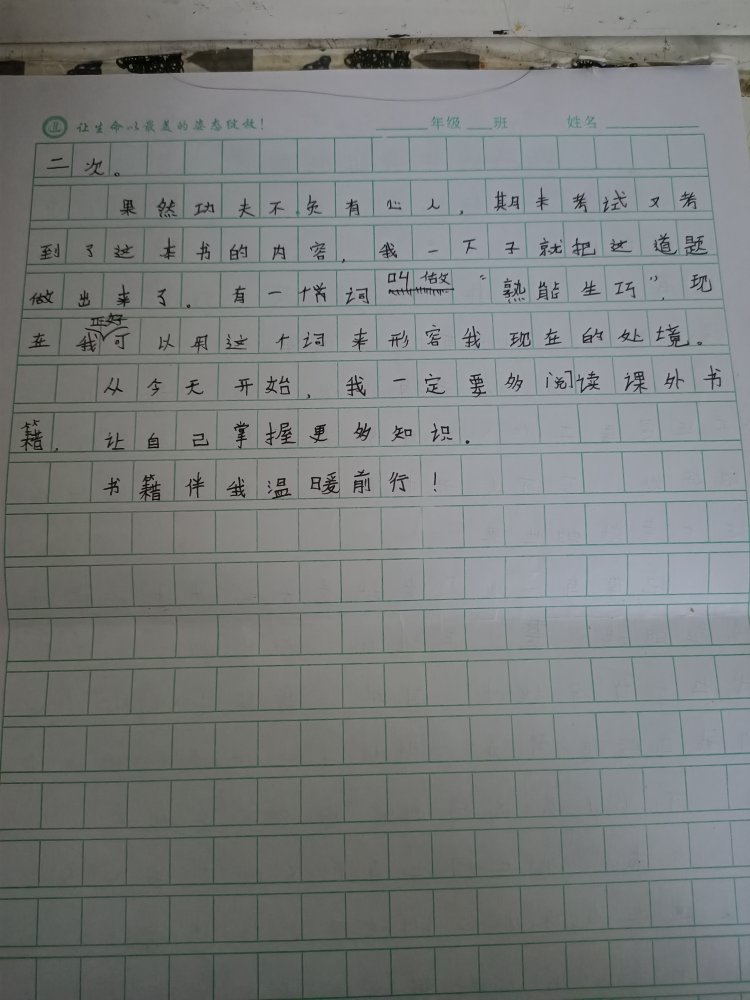 让生命以最美的姿态绽放!
年级 班 姓名
二次。
果然功夫不负有心人,期末考试又考
到了这本书的内容,我一下子就把这道题
做出来了。有一个词叫做“熟能生巧”,现
在我正好可以用这个词来形容我现在的处境。
从今天开始,我一定要多阅读课外书
籍,让自己掌握更多知识。
书籍伴我温暖前行!